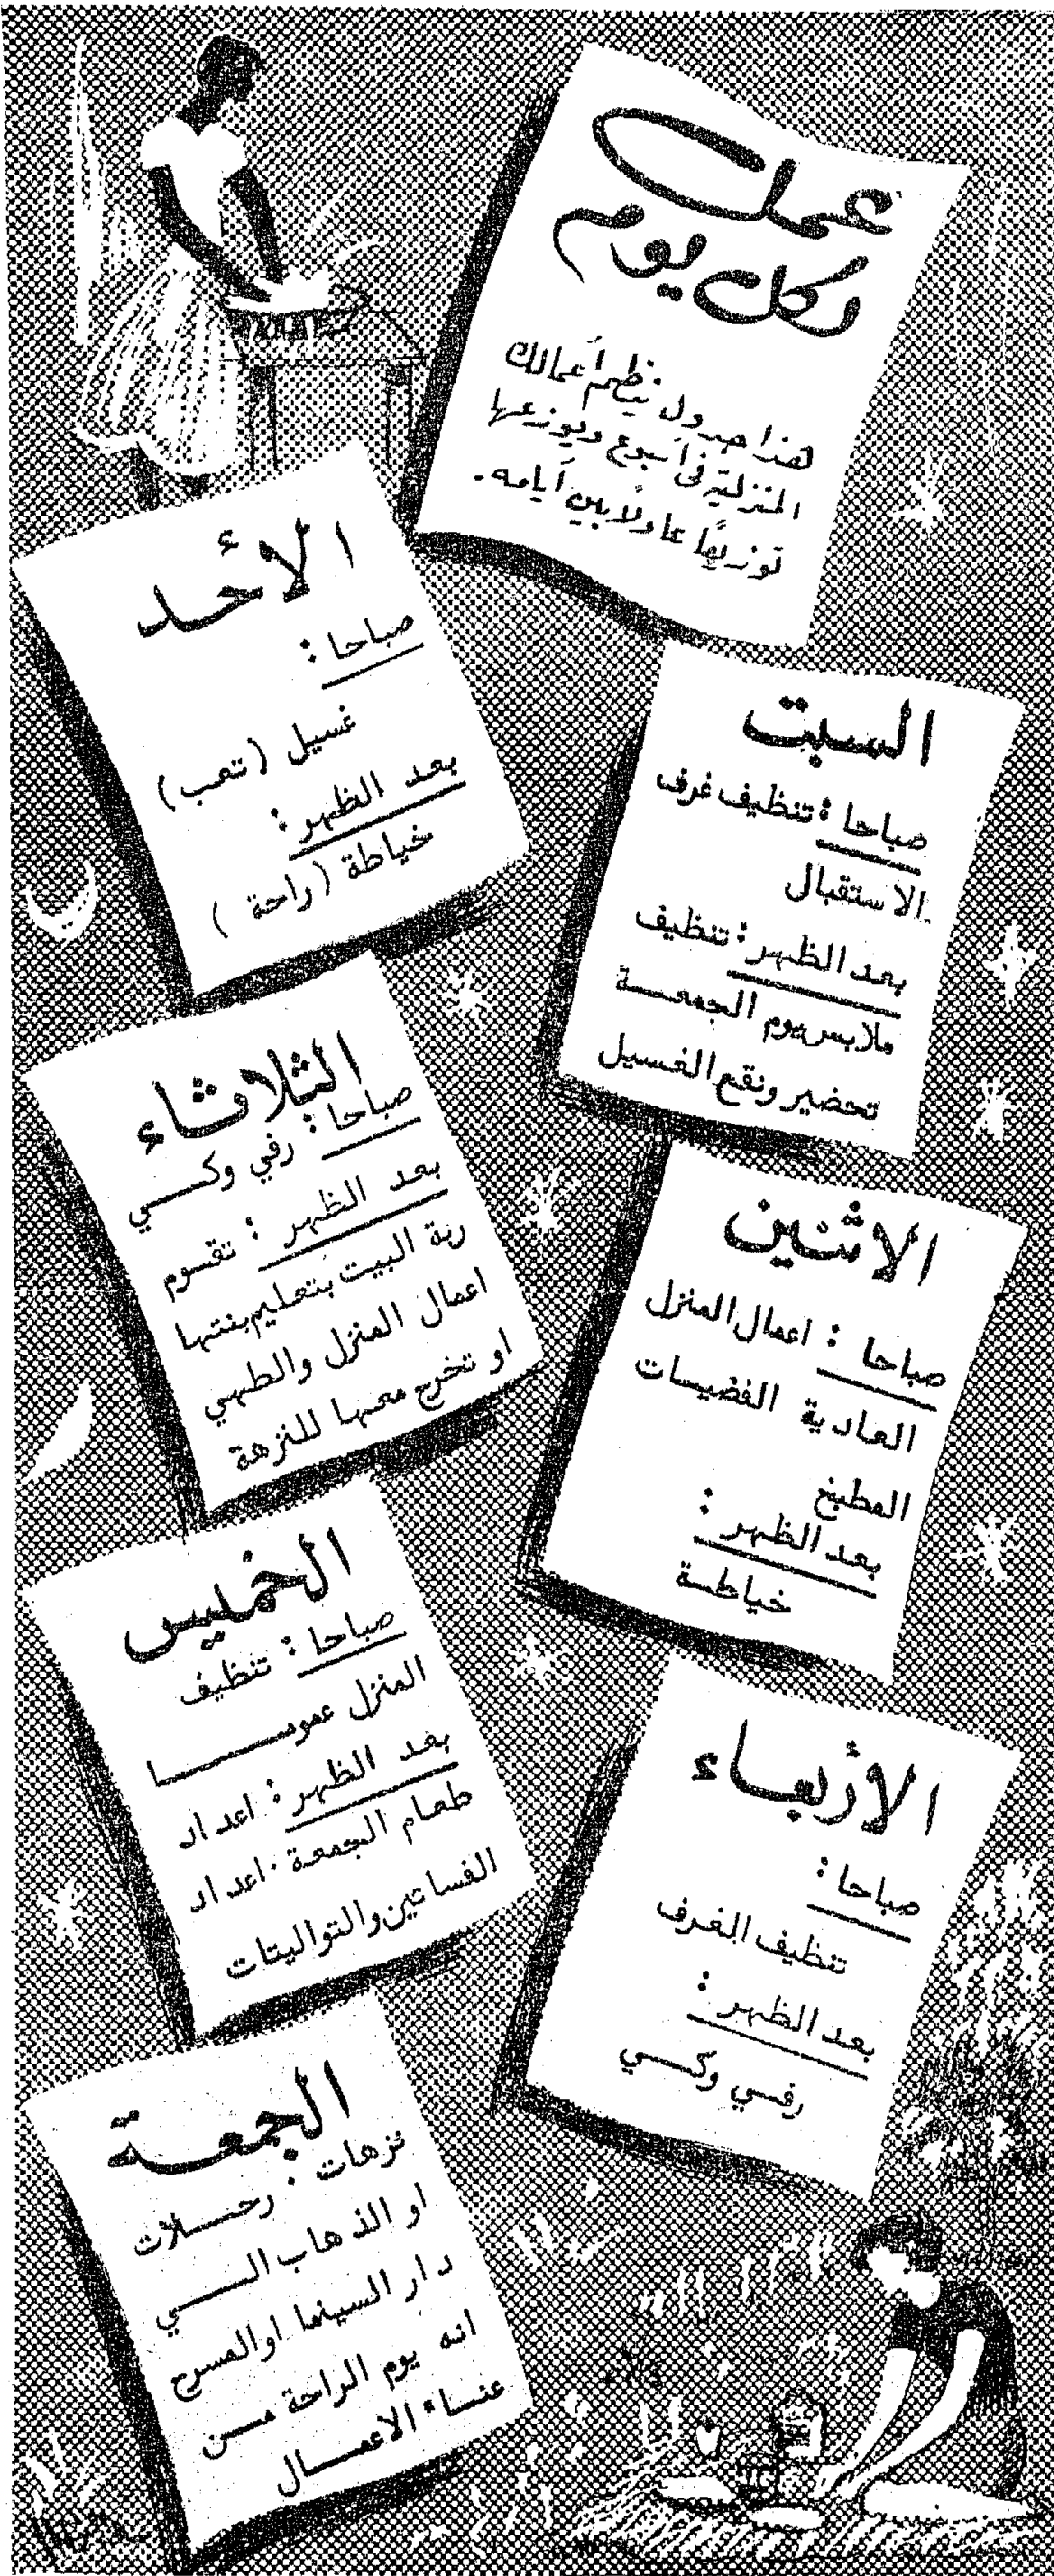 عمل
لكل يوم
هذا جدول ينظم أعمالك
المنزلية في أسبوع ويوزعها
توزيعًا عادلًا بين أيامه.
السبت
صباحا : تنظيف غرف
الاستقبال
بعد الظهر : تنظيف
ملابس يوم الجمعــة
تحضير ونقع الغسيل
الأحد
صباحا :
غسيل ( تعب )
بعد الظهر :
خياطة ( راحة )
الاثنين
صباحا : اعمال المنزل
العادية الفضيات
المطبخ
بعد الظهر :
خياطـة
الثلاثاء
صباحا : رفي وكـــي
بعد الظهر : تقـوم
ربة البيت بتعليم بنتها
اعمال المنزل والطهي
او تخرج معها للنزهة
الأربعـاء
صباحا :
تنظيف الغرف
بعد الظهر :
رفـي وكــي
الخميس
صباحا : تنظيف
المنزل عمومــــا
بعد الظهر : اعداد
طعام الجمعة . اعداد
الفساتين والتواليتات
الجمعــة
نزهات . رحــلات
او الذهاب الــــي
دار السينما او المسرح
انه يوم الراحة مــن
عنـاء الاعمــال